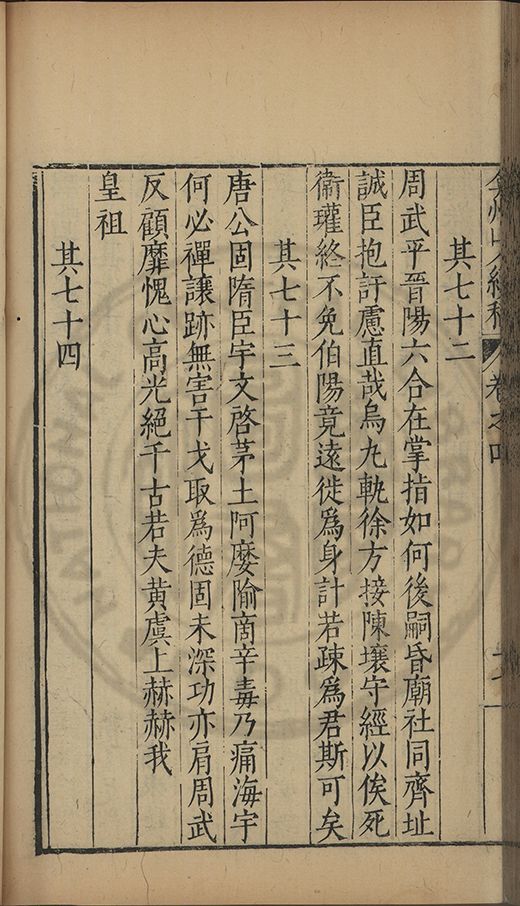 弇州山人續稿 卷之四
其七十二
周武平晉陽六合在掌指如何後嗣昏廟社同齊址
誠臣抱訏慮直哉烏丸軌徐方接陳壤守經以俟死
衞瓘終不免伯陽竟遠徙爲身計若疎爲君斯可矣
其七十三
唐公固隋臣宇文啓茅土阿㜷隃商辛毒乃痡海宇
何必禪讓跡無害干戈取爲德固未深功亦肩周武
反顧靡愧心高光絕千古若夫黃虞上赫赫我
皇祖
其七十四